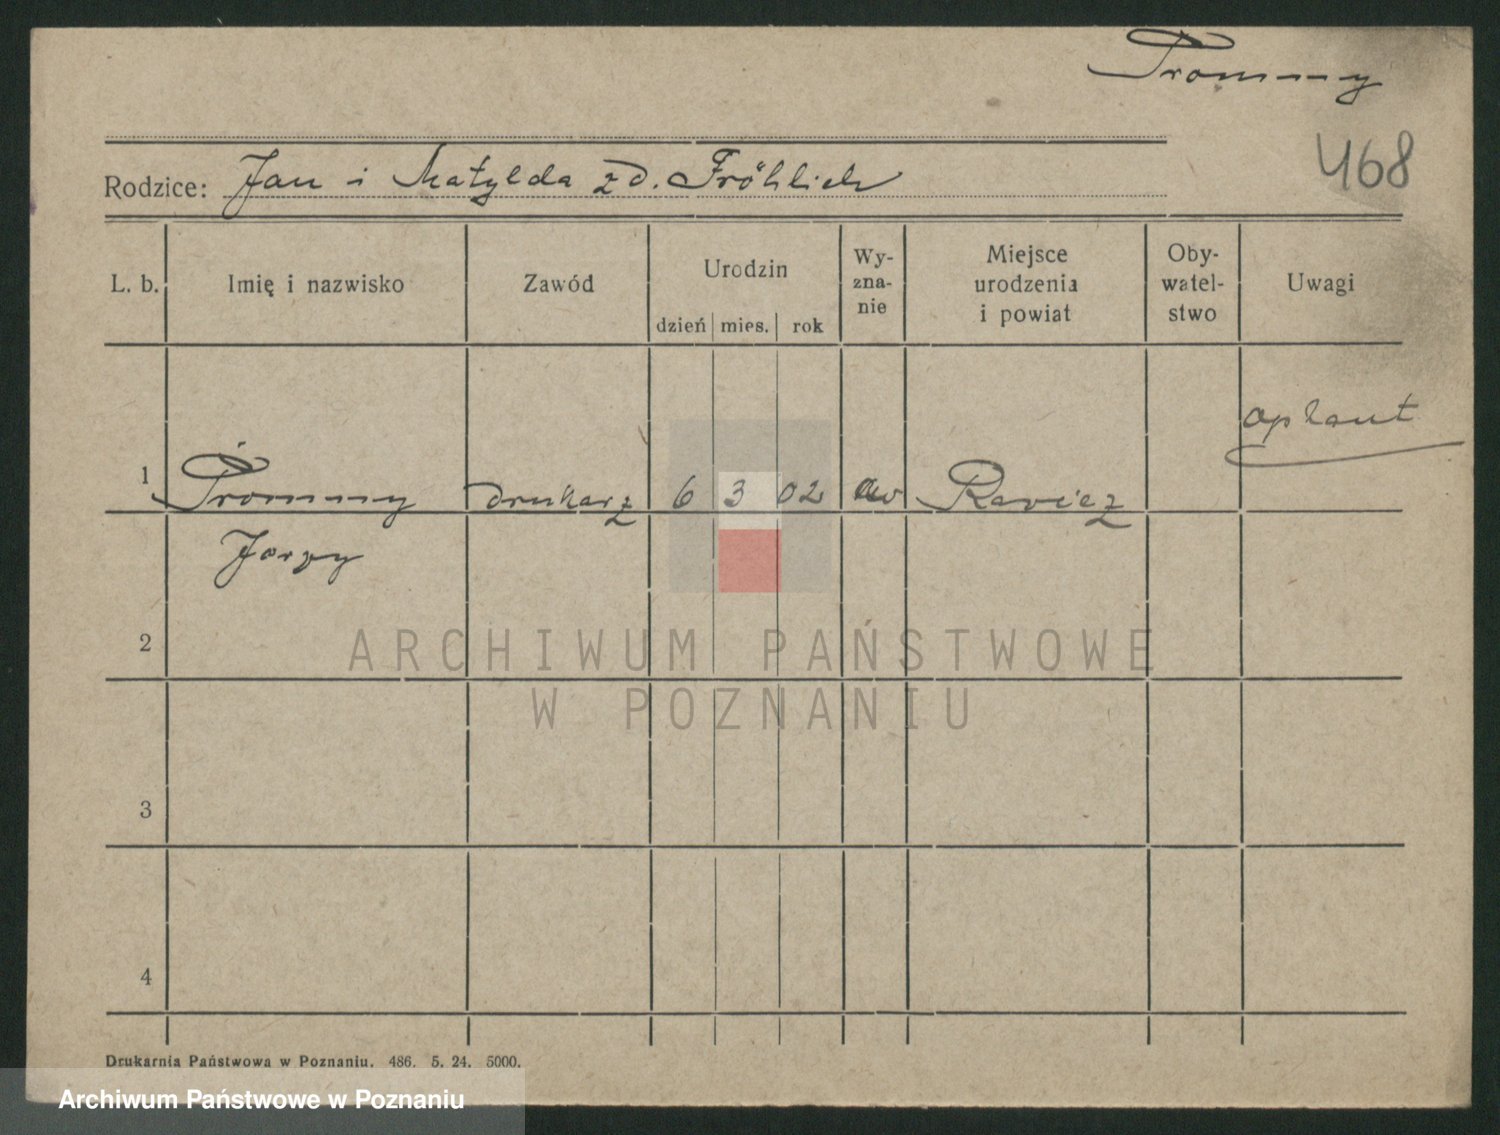 Prommny
468
Rodzice: Jan i Matylda zd. Fröhlich
L. b. Imię i nazwisko Zawód Urodzin dzień mies. rok Wy-zna-nie Miejsce urodzenia i powiat Oby-watel-stwo Uwagi
optant
1 Prommny drukarz 6 3 02 ew Rawicz
Jerzy
2
ARCHIWUM PAŃSTWOWE
W POZNANIU
3
4
Drukarnia Państwowa w Poznaniu. 486. 5. 24. 5000.
Archiwum Państwowe w Poznaniu